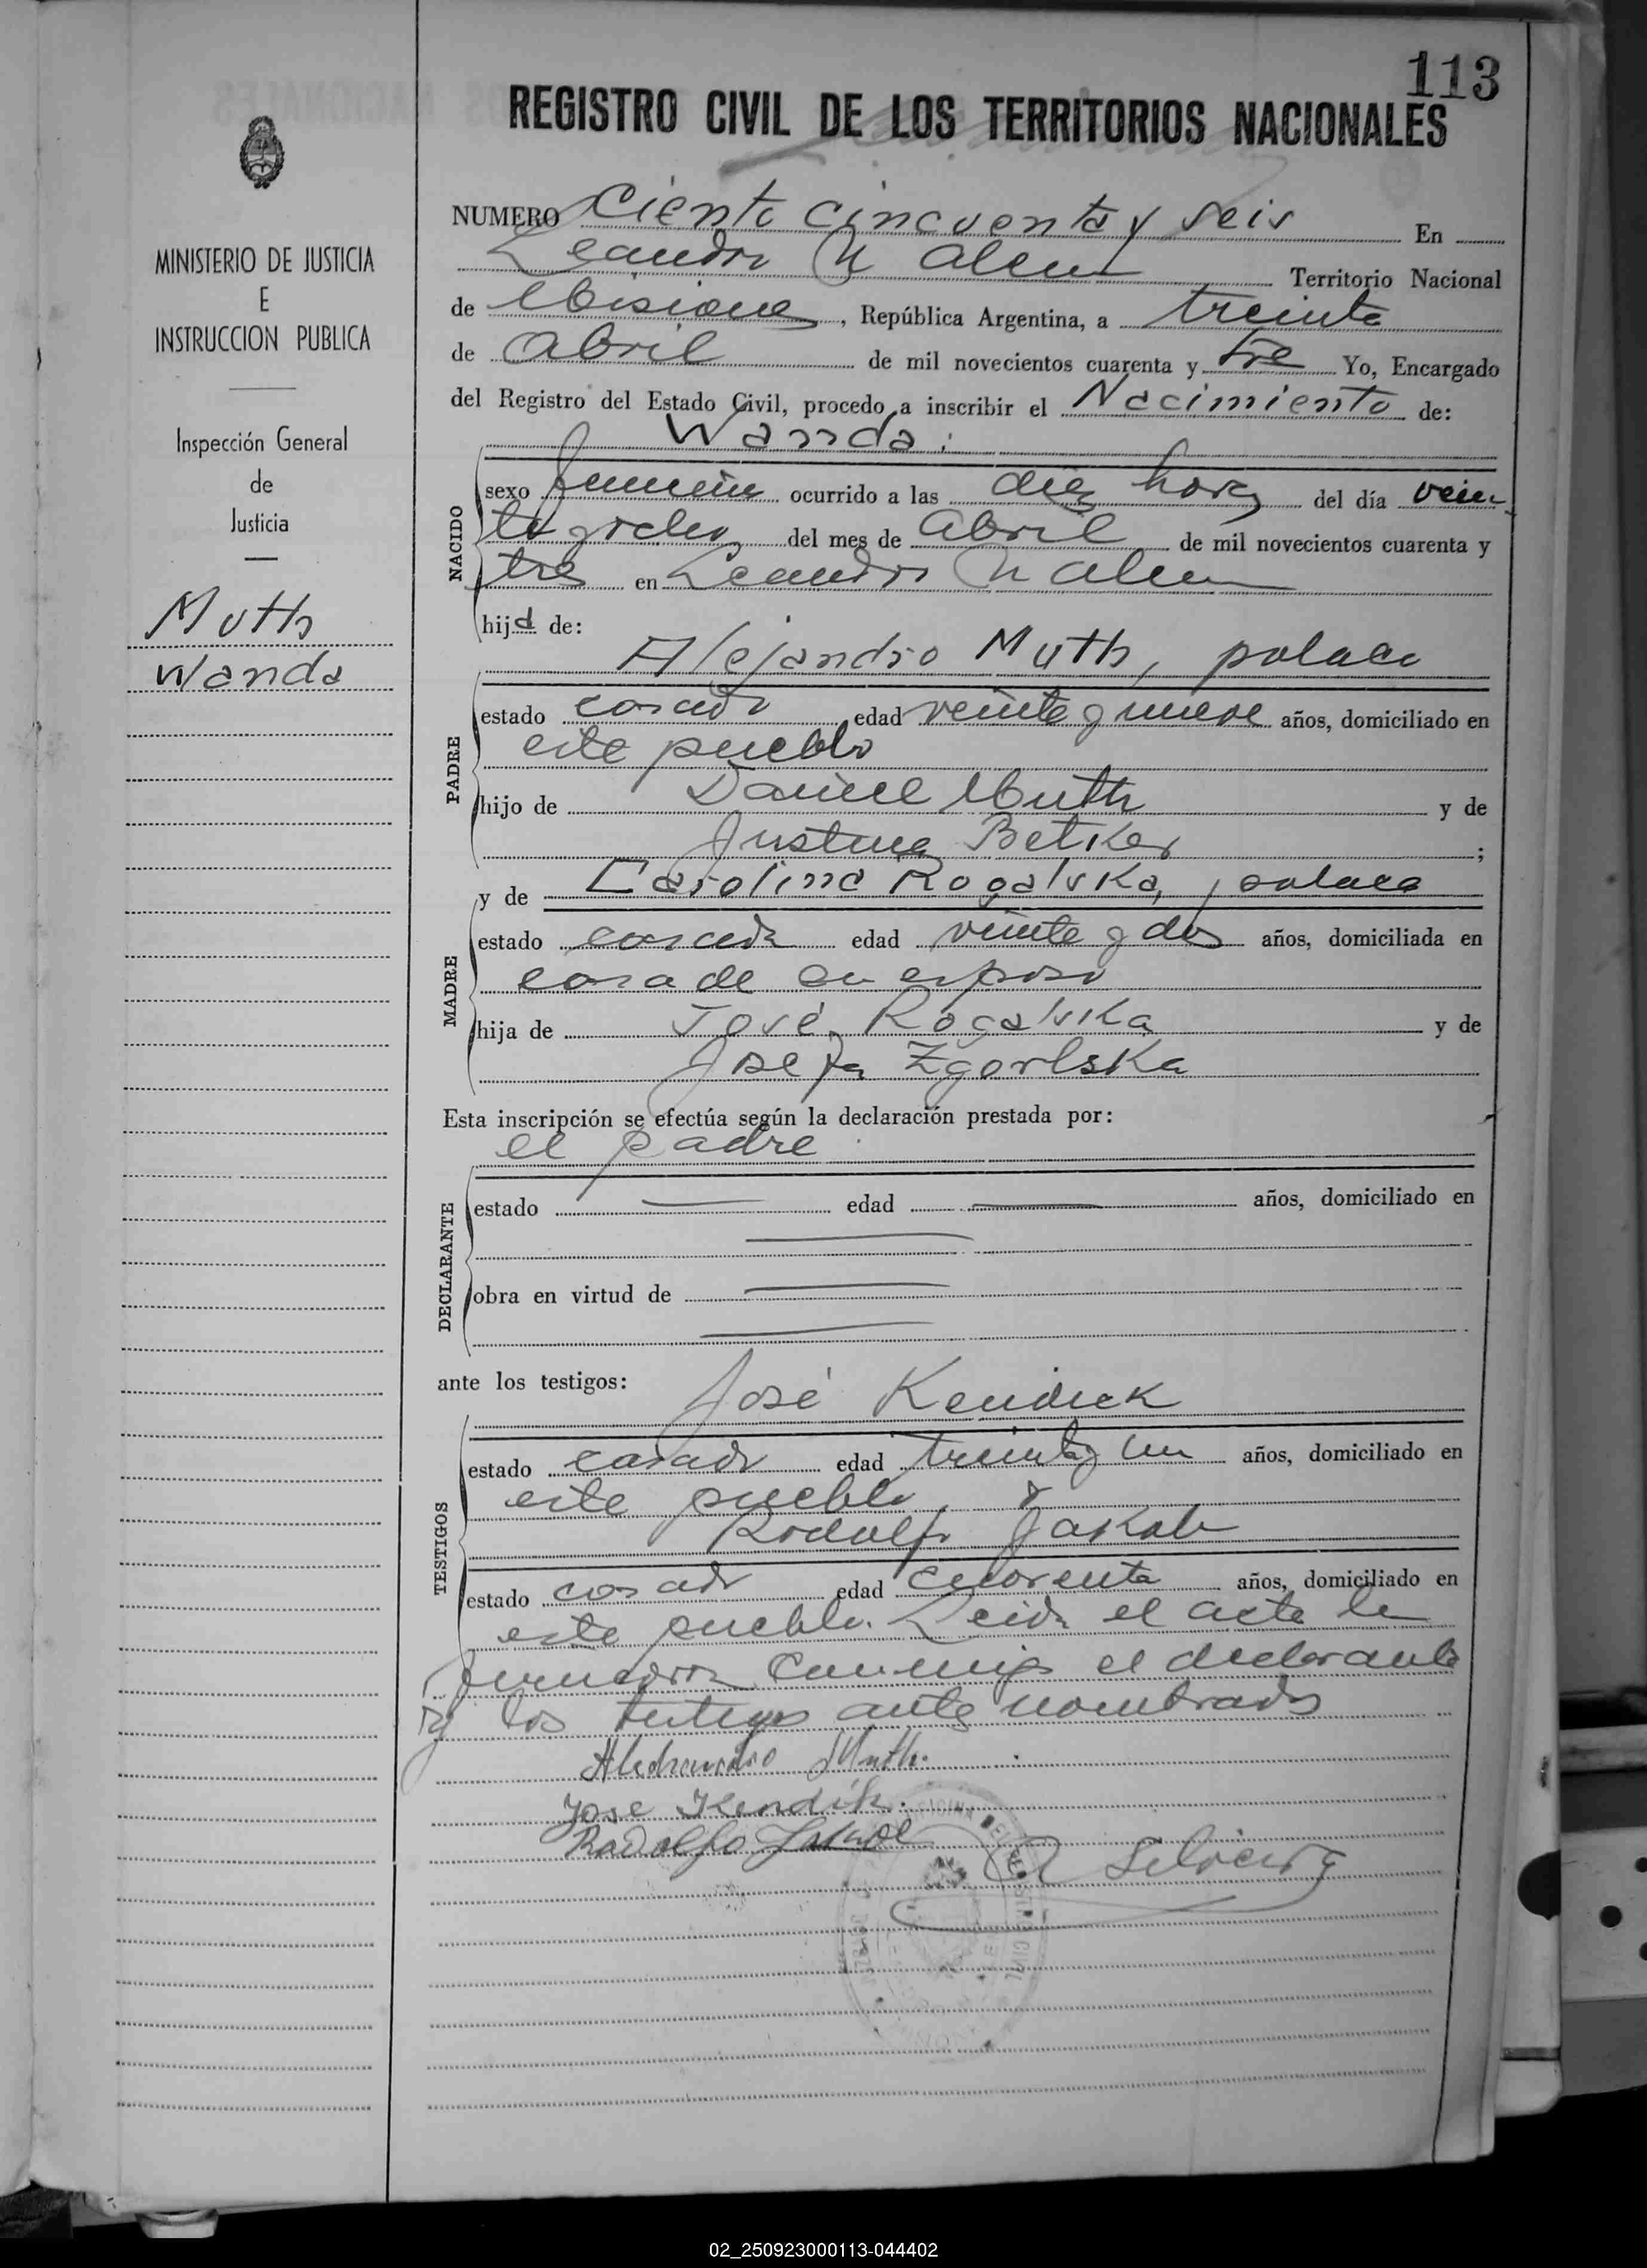 113
REGISTRO CIVIL DE LOS TERRITORIOS NACIONALES
MINISTERIO DE JUSTICIA
E
INSTRUCCION PUBLICA
Inspección General
de
Justicia
Muth
Wanda
NUMERO Ciento cincuenta y seis En
Leandro N Alem Territorio Nacional
de Misiones, República Argentina, a treinta
de Abril de mil novecientos cuarenta y tres Yo, Encargado
del Registro del Estado Civil, procedo a inscribir el Nacimiento de:
Wanda:
NACIDO
sexo femenino ocurrido a las diez horas del día vein
te y ocho del mes de Abril de mil novecientos cuarenta y
tres en Leandro N Alem
hija de:
Alejandro Muth, polaco
PADRE
estado casado edad veinte y nueve años, domiciliado en
este pueblo
hijo de Daniel Muth y de
Justina Betker ;
y de Carolina Rogalska, polaca
MADRE
estado casada edad veinte y dos años, domiciliada en
casa de su esposo
hija de José Rogalska y de
Josefa Zgorlska
Esta inscripción se efectúa según la declaración prestada por:
el padre
DECLARANTE
estado edad años, domiciliado en
obra en virtud de
ante los testigos:
José Kendick
TESTIGOS
estado casado edad treinta y un años, domiciliado en
este pueblo y
Rodolfo Jakob
estado casado edad cuarenta años, domiciliado en
este pueblo. Leida el acta la
firmaron conmigo el declarante
y los testigos ante nombrados
Muth.
Jose Kendik.
Rodolfo
R Silveira
02_250923000113-044402